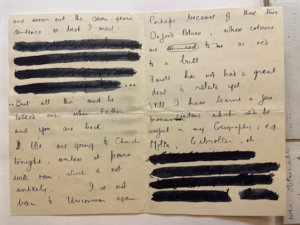 and wear out the seven years
sentence as best I may.
...
But all this must be
talked over when Father
and you are back.
We are going to Church
tonight, unless it pours
with rain, which is not
unlikely. I've not
been to Unicorum again.
Perhaps because of these two
Oxford Blues, whose colours
are to me as red
to a bull.
has not had a great
deal to relate yet.
Still I have learnt a few
which used to be
in my Geography; e.g.
Malta, Gibraltar, etc